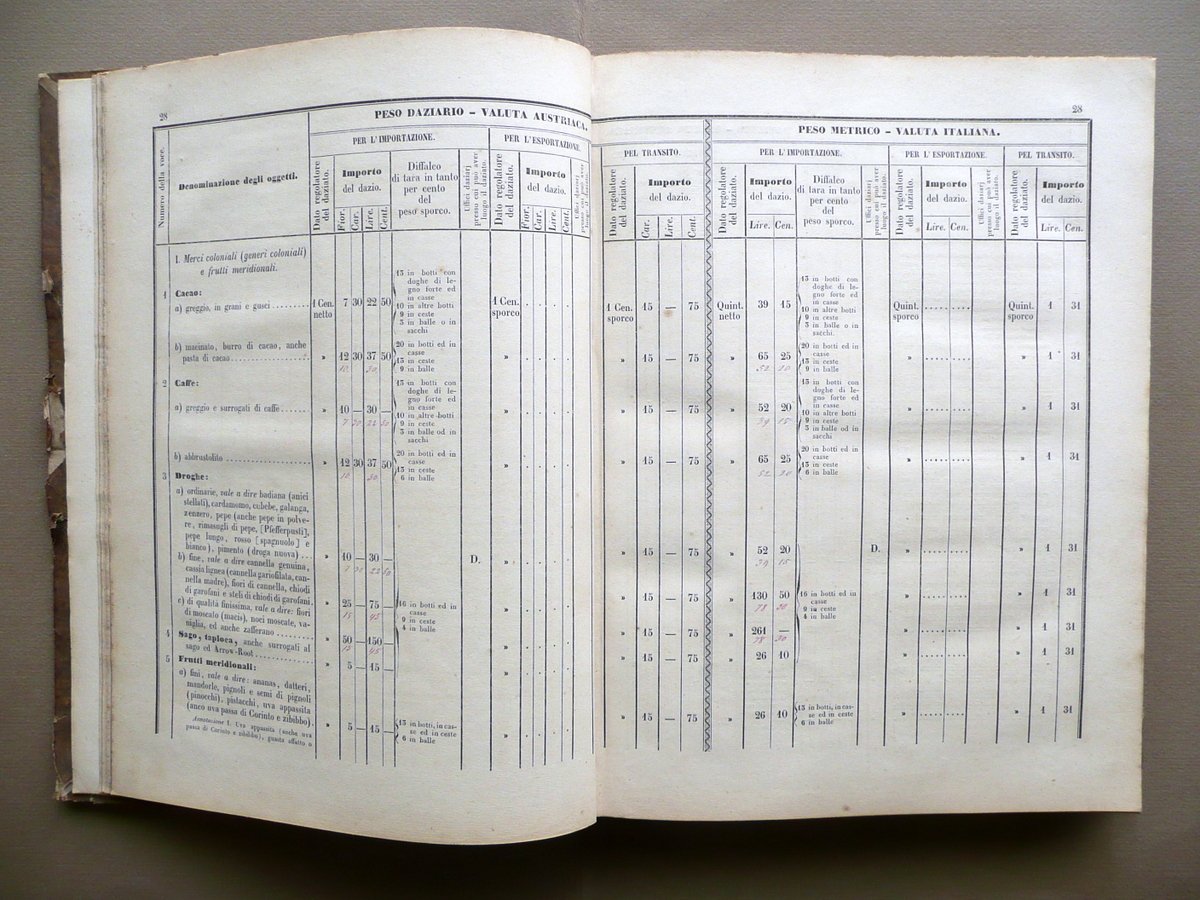 28
PESO DAZIARIO – VALUTA AUSTRIACA.
Numero della voce.
Denominazione degli oggetti.
PER L'IMPORTAZIONE.
PER L'ESPORTAZIONE.
Dato regolatore del daziato.
Importo
del dazio.
Fior. Car. Lire. Cent.
Diffalco
di tara in tanto
per cento
del
peso sporco.
Uffici daziarj
presso cui può aver
luogo il daziato.
Dato regolatore
del daziato.
Importo
del dazio.
Fior. Car. Lire. Cent.
I. Merci coloniali (generi coloniali)
e frutti meridionali.
1 Cacao:
a) greggio, in grani e gusci 1 Cen. netto 7 30 22 50 1 Cen. sporco
15 in botti con
doghe di le-
gno forte ed
in casse
10 in altre botti
9 in ceste
3 in balle o in
sacchi.
b) macinato, burro di cacao, anche
pasta di cacao » 12 30 37 50 »
10 30
20 in botti ed in
casse
13 in ceste
9 in balle
2 Caffe:
a) greggio e surrogati di caffe » 10 — 30 — »
7 30 22 50
15 in botti con
doghe di le-
gno forte ed
in casse
10 in altre botti
9 in ceste
3 in balle od in
sacchi
b) abbrustolito » 12 30 37 50 »
10 30
20 in botti ed in
casse
13 in ceste
6 in balle
3 Droghe:
a) ordinarie, vale a dire badiana (anici
stellati), cardamomo, cubebe, galanga,
zenzero, pepe (anche pepe in polve-
re, rimasugli di pepe, [Pfefferpusti],
pepe lungo, rosso [spagnuolo] e
bianco), pimento (droga nuova) » 10 — 30 — D. »
7 30 22 50
b) fine, vale a dire cannella genuina,
cassia lignea (cannella gariofilata, can-
nella madre), fiori di cannella, chiodi
di garofani e steli di chiodi di garofani. » 25 — 75 — »
15 45
16 in botti ed in
casse
9 in ceste
4 in balle
c) di qualità finissima, vale a dire: fiori
di moscato (macis), noci moscate, va-
niglia, ed anche zafferano » 50 — 150 — »
15 45
4 Sago, tapioca, anche surrogati al
sago ed Arrow-Root » 5 — 15 — »
5 Frutti meridionali:
a) fini, vale a dire: ananas, datteri,
mandorle, pignoli e semi di pignoli
(pinocchi), pistacchi, uva appassita
(anco uva passa di Corinto e zibibbo). » 5 — 15 — »
13 in botti, in cas-
se ed in ceste
6 in balle
Annotazione 1. Uva appassita (anche uva
passa di Corinto e zibibbo), guasta affatto o
28
PESO METRICO – VALUTA ITALIANA.
PEL TRANSITO.
PER L'IMPORTAZIONE.
PER L'ESPORTAZIONE.
PEL TRANSITO.
Dato regolatore
del daziato.
Importo
del dazio.
Car. Lire. Cent.
Dato regolatore
del daziato.
Importo
del dazio.
Lire. Cen.
Diffalco
di tara in tanto
per cento
del
peso sporco.
Uffici daziarj
presso cui può aver
luogo il daziato.
Dato regolatore
del daziato.
Importo
del dazio.
Lire. Cen.
Uffici daziarj
presso cui può aver
luogo il daziato.
Dato regolatore
del daziato.
Importo
del dazio.
Lire. Cen.
1 Cen. sporco 15 — 75 Quint. netto 39 15 Quint. sporco Quint. sporco 1 31
15 in botti con
doghe di le-
gno forte ed
in casse
10 in altre botti
9 in ceste
3 in balle o in
sacchi.
» 15 — 75 » 65 25 » » 1 31
52 20
20 in botti ed in
casse
13 in ceste
9 in balle
» 15 — 75 » 52 20 » » 1 31
39 15
15 in botti con
doghe di le-
gno forte ed
in casse
10 in altre botti
9 in ceste
3 in balle od in
sacchi
» 15 — 75 » 65 25 » » 1 31
52 20
20 in botti ed in
casse
13 in ceste
6 in balle
» 15 — 75 » 52 20 D. » » 1 31
39 15
» 15 — 75 » 130 50 » » 1 31
78 30
16 in botti ed in
casse
9 in ceste
4 in balle
» 15 — 75 » 261 — » » 1 31
78 30
» 15 — 75 » 26 10 » » 1 31
» 15 — 75 » 26 10 » » 1 31
13 in botti, in cas-
se ed in ceste
6 in balle